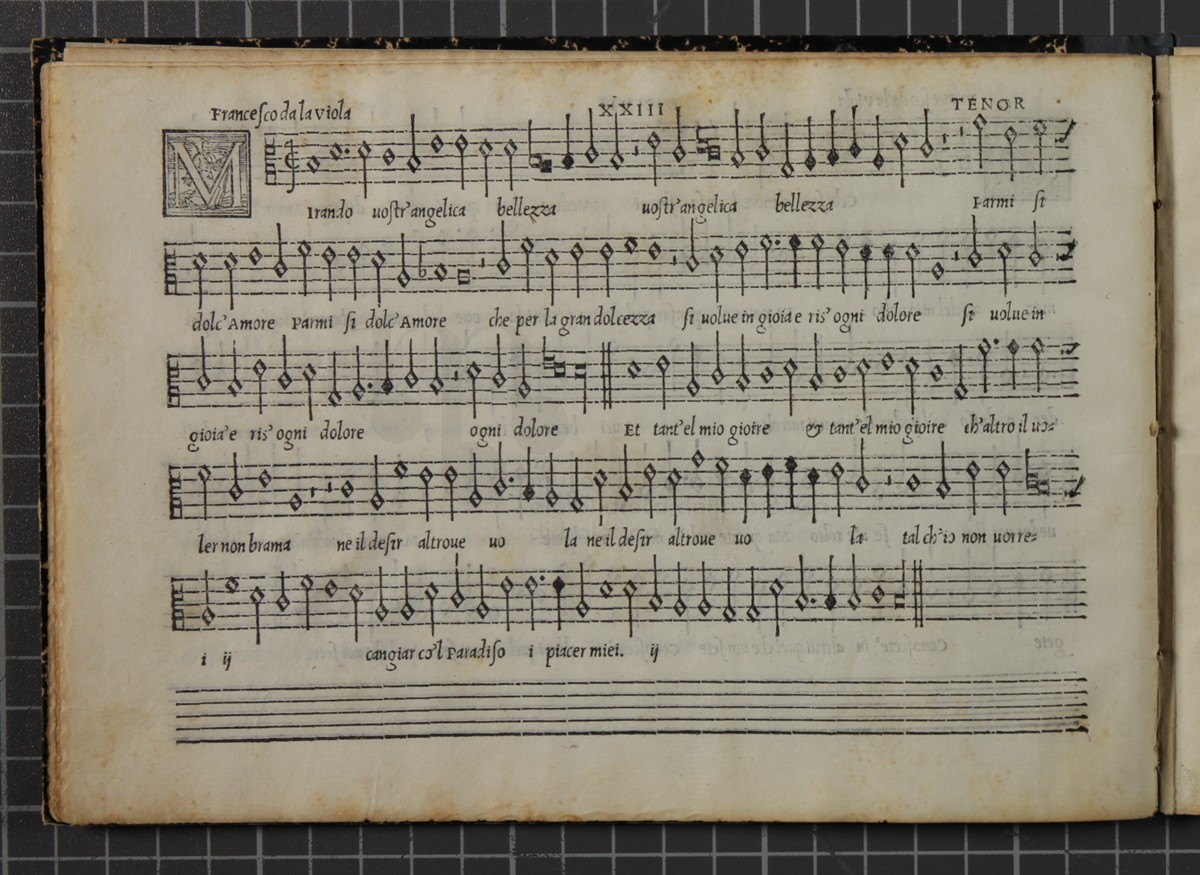 Francesco da la viola XXIII TENOR
MIrando uostr'angelica bellezza uostr'angelica bellezza Parmi si
dolc'Amore Parmi si dolc'Amore che per la gran dolcezza si uolue in gioia e ris' ogni dolore si uolue in
gioia'e ris' ogni dolore ogni dolore Et tant'el mio gioire & tant'el mio gioire ch'altro il uo=
ler non brama ne il desir altroue uo la ne il desir altroue uo la tal ch'io non uorre=
i ij cangiar co'l Paradiso i piacer miei. ij